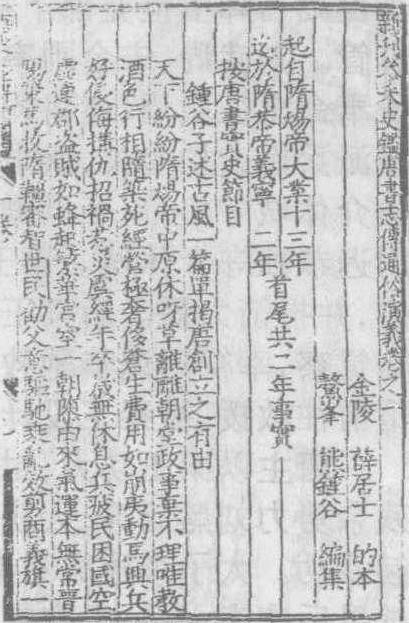 新刊參采史鑑唐書志傳通俗演義卷之一
金陵 薛居士 的本
鰲峯 熊鍾谷 編集
起自隋煬帝大業十三年
迄於隋恭帝義寧 二年
首尾共二年事實
按唐書實史節目
鍾谷子述古風一篇單揭唐創立之有由
天下紛紛隋煬帝中原休呀草離離朝堂政事棄不理唯教
酒色行相隨築死經營極奢侈蒼生費用如崩夷動馬興兵
好侵侮搆仇招禍惹災盧經年卒歲無休息兵疲民困國空
虛連郡盜賊如蜂起繁華宮室一朝隳由來氣運本無常晉
陽
智世民勸父意驅馳乘亂效剪商義旗一